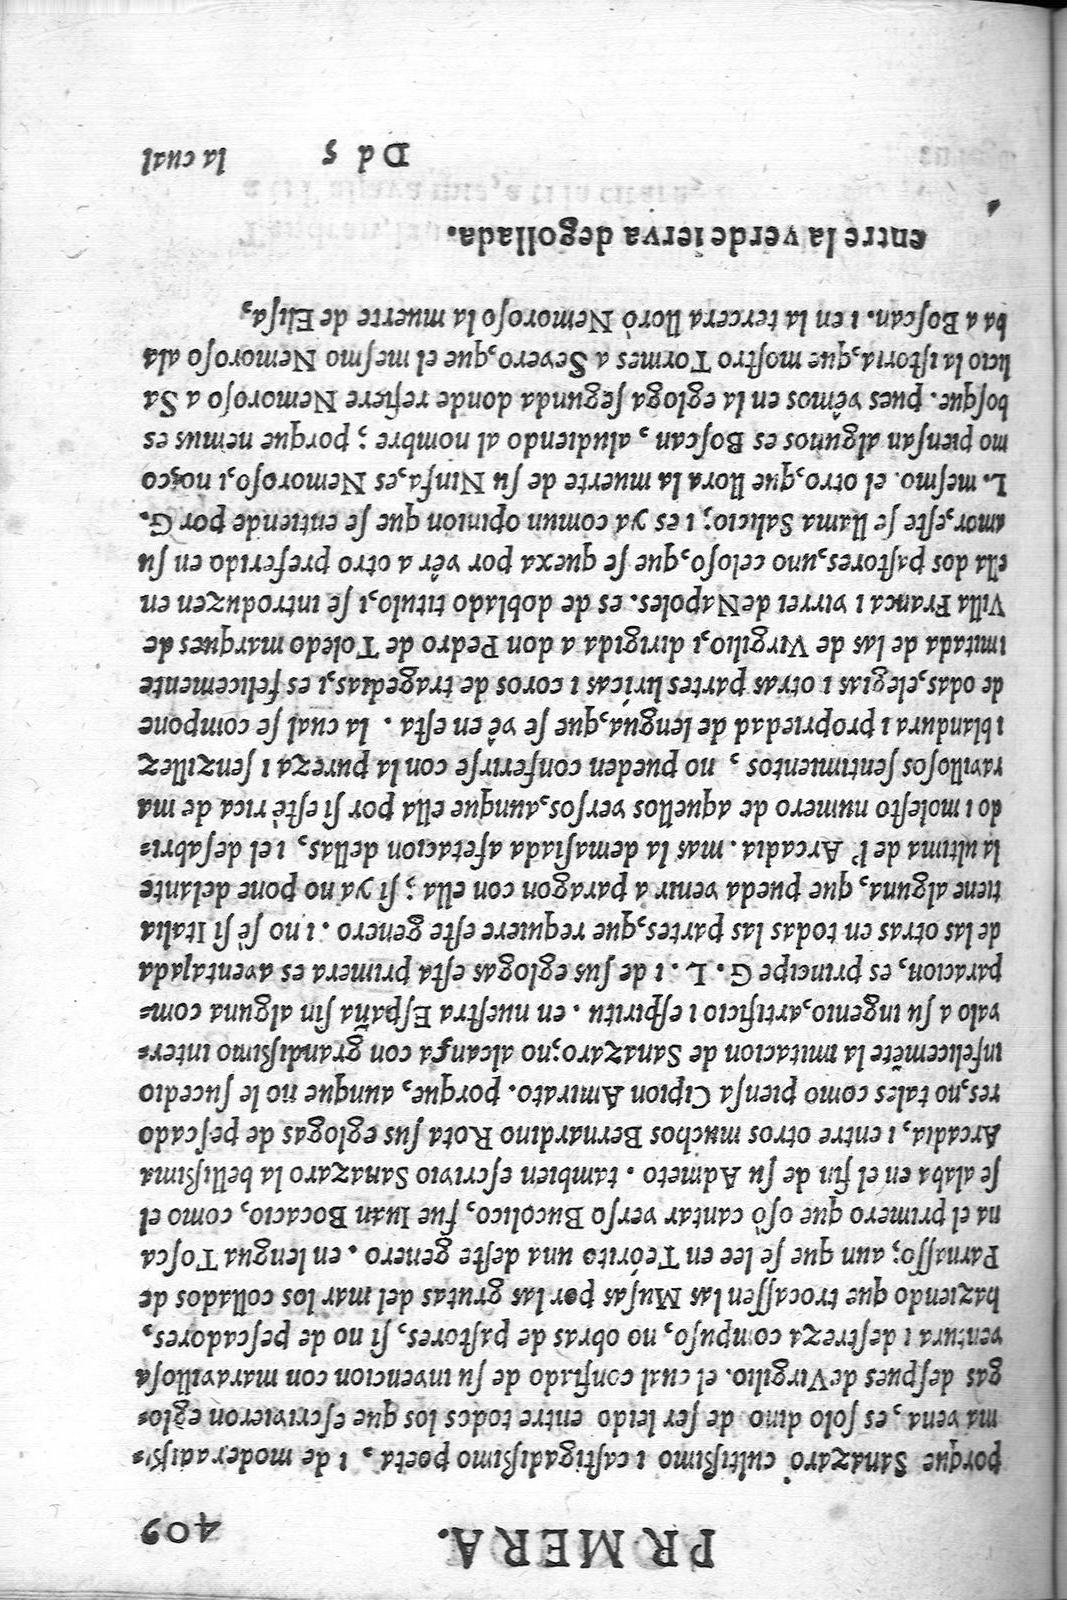 PRMERA. 409
porque Sanazaro cultißimo i caſtigadißimo poeta, i de moderadiß-
ma vena, es ſolo dino de ſer leido entre todos los que eſcrivieron eglo-
gas deſpues de Virgilio. el cual confiado de ſu invencion con maravilloſa
ventura i deſtreza compuſo, no obras de paſtores, ſi no de peſcadores,
haziendo que trocaſſen las Muſas por las grutas del mar los collados de
Parnaſſo; aun que ſe lee en Teócrito una deſte genero. en lengua Toſca
na el primero que oſò cantar verſo Bucolico, fue Iuan Bocacio, como el
ſe alaba en el fin de ſu Admeto. tambien eſcrivio Sanazaro la bellißima
Arcadia, i entre otros muchos Bernardino Rota ſus eglogas de peſcado
res, no tales como pienſa Cipion Amirato. porque, aunque no le ſucedio
infelicemẽte la imitacion de Sanazaro; no alcança con grandißimo inter-
valo a ſu ingenio, artificio i eſpiritu. en nueſtra Eſpaña ſin alguna com-
paracion, es principe G. L. i de ſus eglogas eſta primera es aventajada
de las otras en todas las partes, que requiere eſte genero. i no ſè ſi Italia
tiene alguna, que pueda venir a paragon con ella; ſi ya no pone delante
la ultima de l' Arcadia. mas la demaſiada afetacion dellas, i el deſabri-
do i moleſto numero de aquellos verſos, aunque ella por ſi eſtè rica de ma
ravilloſos ſentimientos, no pueden conferirſe con la pureza i ſenzillez
i blandura i propriedad de lengua, que ſe vê en eſta. la cual ſe compone
de odas, elegias i otras partes liricas i coros de tragedias, i es felicemente
imitada de las de Virgilio, i dirigida a don Pedro de Toledo marques de
Villa Franca i virrei de Napoles. es de doblado titulo, i ſe introduzen en
ella dos paſtores, uno celoſo, que ſe quexa por vêr a otro preferido en ſu
amor, eſte ſe llama Salicio; i es ya comun opinion que ſe entiende por G.
L. meſmo. el otro, que llora la muerte de ſu Ninfa, es Nemoroſo, i no, co
mo pienſan algunos es Boſcan, aludiendo al nombre; porque nemus es
boſque. pues vêmos en la egloga ſegunda donde refiere Nemoroſo a Sa
licio la iſtoria, que moſtro Tormes a Severo, que el meſmo Nemoroſo ala
ba a Boſcan. i en la tercera llorò Nemoroſo la muerte de Eliſa,
entre la verde ierva degollada.
Dd 5 la cual